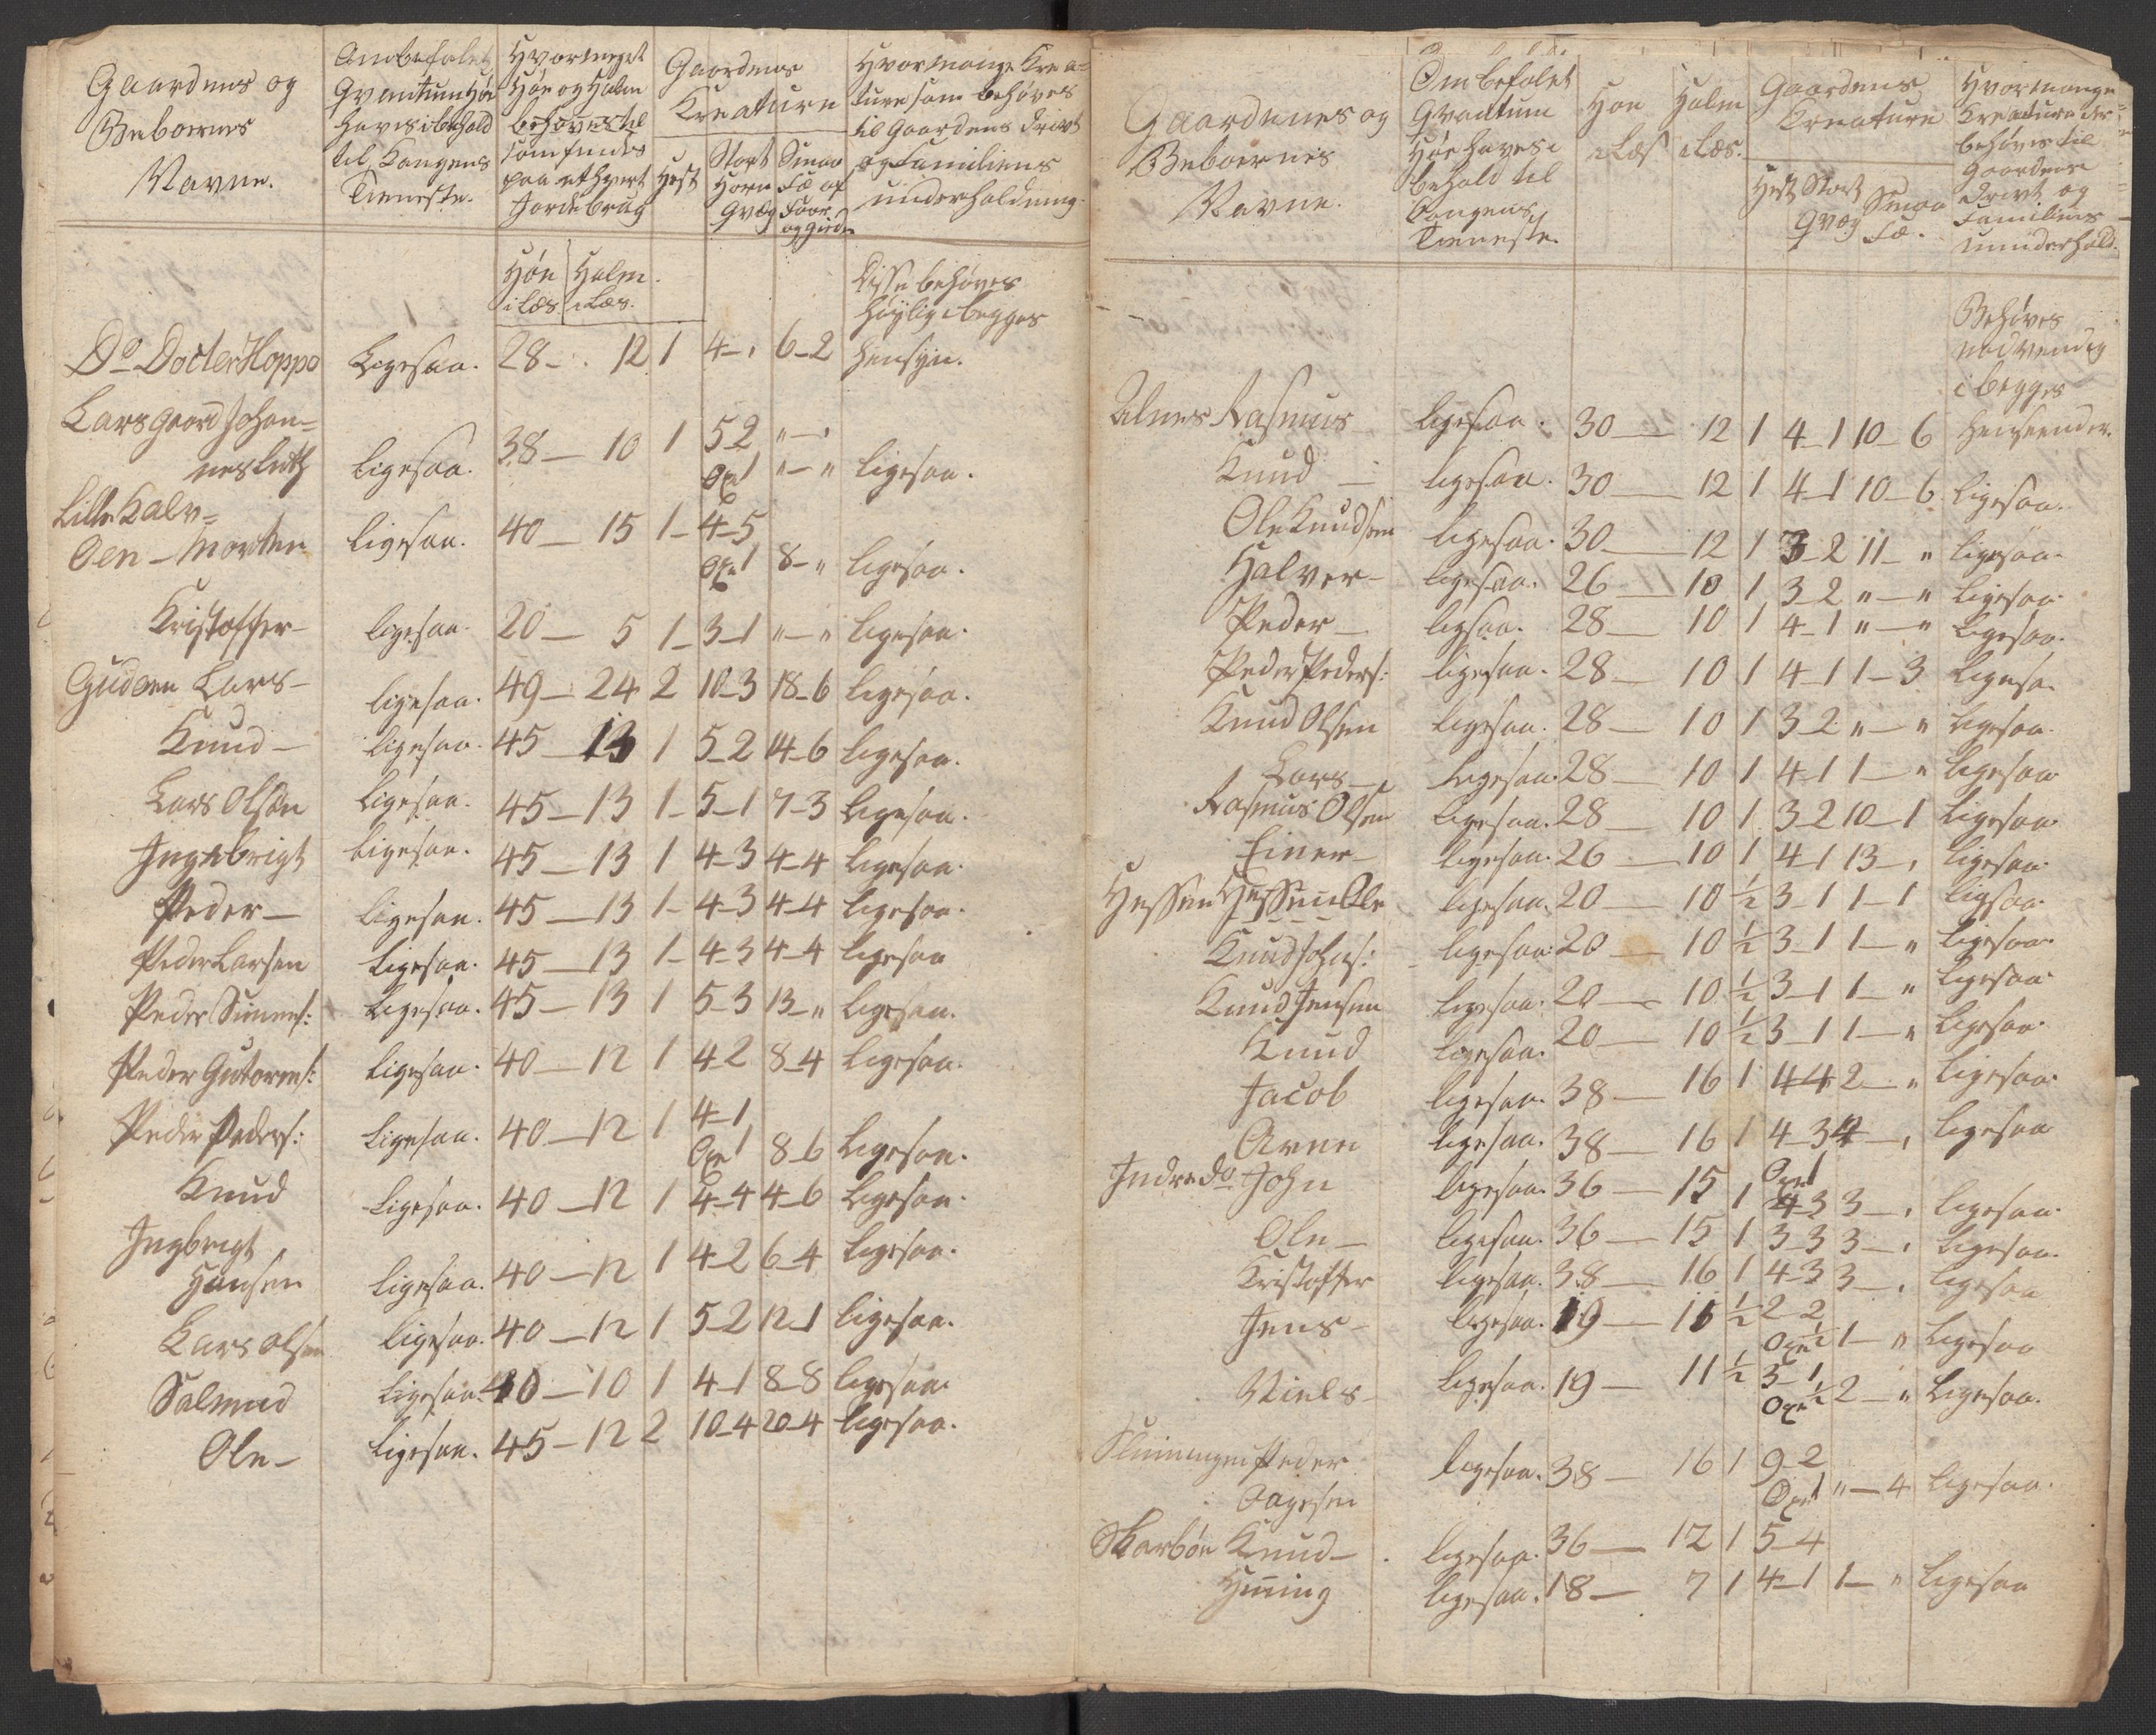 Gaardenes og
Beboernes
Navne.
Anbefalet
Qvantum Høe
haves i behold
til Kongens
Tieneste.
Hvormeget
Høe og Halm
behøves til
som findes
paa ethvert
Jordebrug
Gaardens
Kreature
Hest
Stort Horn Qvæg
Smaa Fæ af Faar og Gieder
Hvormange Krea-
ture som behøves
til Gaardens Drivt
og Familiens
underholdning.
Høe i Læs
Halm i Læs.
Disse behøves
høylig i begges
hensyn.
Do Docter Hoppe Ligesaa. 28 - 12 1 4 - 1 6 - 2
Lars gaard Johan=
nes Luth ligesaa. 38 - 10 1 5 2 " - "
Oxe 1 " - " ligesaa.
Lille Kalv=
Oen - Morten ligesaa. 40 - 15 1 - 4 - 5
Oxe 1 8 - " ligesaa.
Kristoffer - ligesaa. 20 - 5 1 - 3 - 1 " - " ligesaa.
Gudøen Lars - ligesaa. 49 - 24 2 10 - 3 18 - 6 ligesaa.
Knud - ligesaa. 45 - 13 1 5 - 2 14 - 6 ligesaa.
Lars Olsen Ligesaa. 45 - 13 1 - 5 - 1 7 - 3 Ligesaa.
Ingebrigt Ligesaa. 45 - 13 1 4 - 3 4 - 4 Ligesaa.
Peder - Ligesaa. 45 - 13 1 - 4 - 3 4 - 4 ligesaa.
Peder Larsen Ligesaa. 45 - 13 1 - 4 - 3 4 - 4 ligesaa
Peder Simens: Ligesaa. 45 - 13 1 5 - 3 13 - " ligesaa.
Peder Gutorms: Ligesaa. 40 - 12 1 4 - 2 8 - 4 ligesaa.
Peder Peders: Ligesaa. 40 - 12 1 4 - 1
Oxe 1 8 - 6 Ligesaa.
Knud Ligesaa. 40 - 12 1 4 - 4 4 - 6 Ligesaa.
Ingbrigt
Hansen Ligesaa. 40 - 12 1 4 - 2 6 - 4 ligesaa.
Lars Olsen ligesaa. 40 - 12 1 5 - 2 12 - 1 ligesaa.
Salmund Ligesaa. 40 - 10 1 4 - 1 8 - 8 ligesaa.
Ole - Ligesaa. 45 - 12 2 10 - 4 20 - 4 ligesaa.
Gaardenes og
Beboernes
Navne.
Ombefalet
Qvantum
Høe haves i
behold til
Kongens
Tieneste.
Høe i Læs
Halm i Læs.
Gaardens
Kreature
Hest
Stort Qvæg
Smaa Fæ.
Hvormange
Kreature der
behøves til
Gaardens
Drivt og
Familiens
underhold.
Behøves
nødvendig
i begges
Alnes Rasmus ligesaa. 30 - 12 1 4 - 1 10 - 6 henseender.
Knud - ligesaa. 30 - 12 1 4 - 1 10 - 6 ligesaa.
Ole Knudsen ligesaa. 30 - 12 1 3 - 2 11 - " ligesaa.
Halver - ligesaa. 26 - 10 1 3 - 2 " - " Ligesaa.
Peder - ligesaa. 28 - 10 1 4 - 1 " - " Ligesaa.
Peder Peders: ligesaa. 28 - 10 1 4 - 1 1 - 3 Ligesa.
Knud Olsen ligesaa. 28 - 10 1 3 2 " - " Ligesaa.
Lars - Ligesaa. 28 - 10 1 4 - 1 1 - " ligesaa
Rasmus Olsen ligesaa. 28 - 10 1 3 - 2 10 - 1 Ligesaa
Einer - ligesaa. 26 - 10 1 4 - 1 13 - " ligesaa.
Hessen Hessen Ole ligesaa. 20 - 10 ½ 3 - 1 1 - 1 ligsaa.
Knud Johs: ligesaa. 20 - 10 ½ 3 - 1 1 - " ligesaa.
Knud Jensen ligesaa. 20 - 10 ½ 3 - 1 1 - " ligesaa.
Knud ligesaa. 20 - 10 ½ 3 - 1 1 - " ligesaa.
Jacob ligesaa. 38 - 16 1 4 4 2 - " ligesaa.
Arne ligesaa. 38 - 16 1 4 - 3 4 - " ligesaa
Indre do John ligesaa. 36 - 15 1 Oxe 1
4 3 3 - " ligesaa.
Ole - ligesaa. 36 - 15 1 3 - 3 3 - " ligesaa.
Kristoffer ligesaa. 38 - 16 1 4 - 3 3 - " ligesaa
Jens - ligesaa. 19 - 11 ½ 2 - 2
Oxe ½ 1 - " Ligesaa
Niels - ligesaa. 19 - 11 ½ 3 - 1
Oxe ½ 2 - " Ligesaa.
Slinningen Peder
Aagesen ligesaa. 38 - 16 1 9 - 2
Oxe 1 " - 4 ligesaa.
Skarbøe Knud - ligesaa. 36 - 12 1 5 - 4
Hening ligesaa. 18 - 7 1 4 - 1 1 - " ligesaa